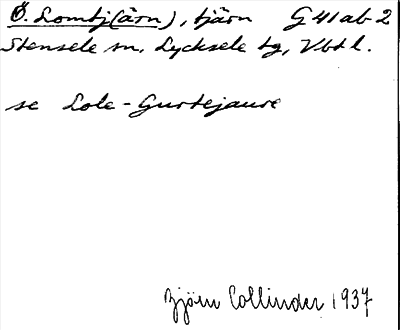 Ö. Lomtj(ärn), tjärn G 41 ab 2
Stensele sn, Lycksele tg, Vbtl.
se Lole-Gurtejaure
Björn Collinder 1937